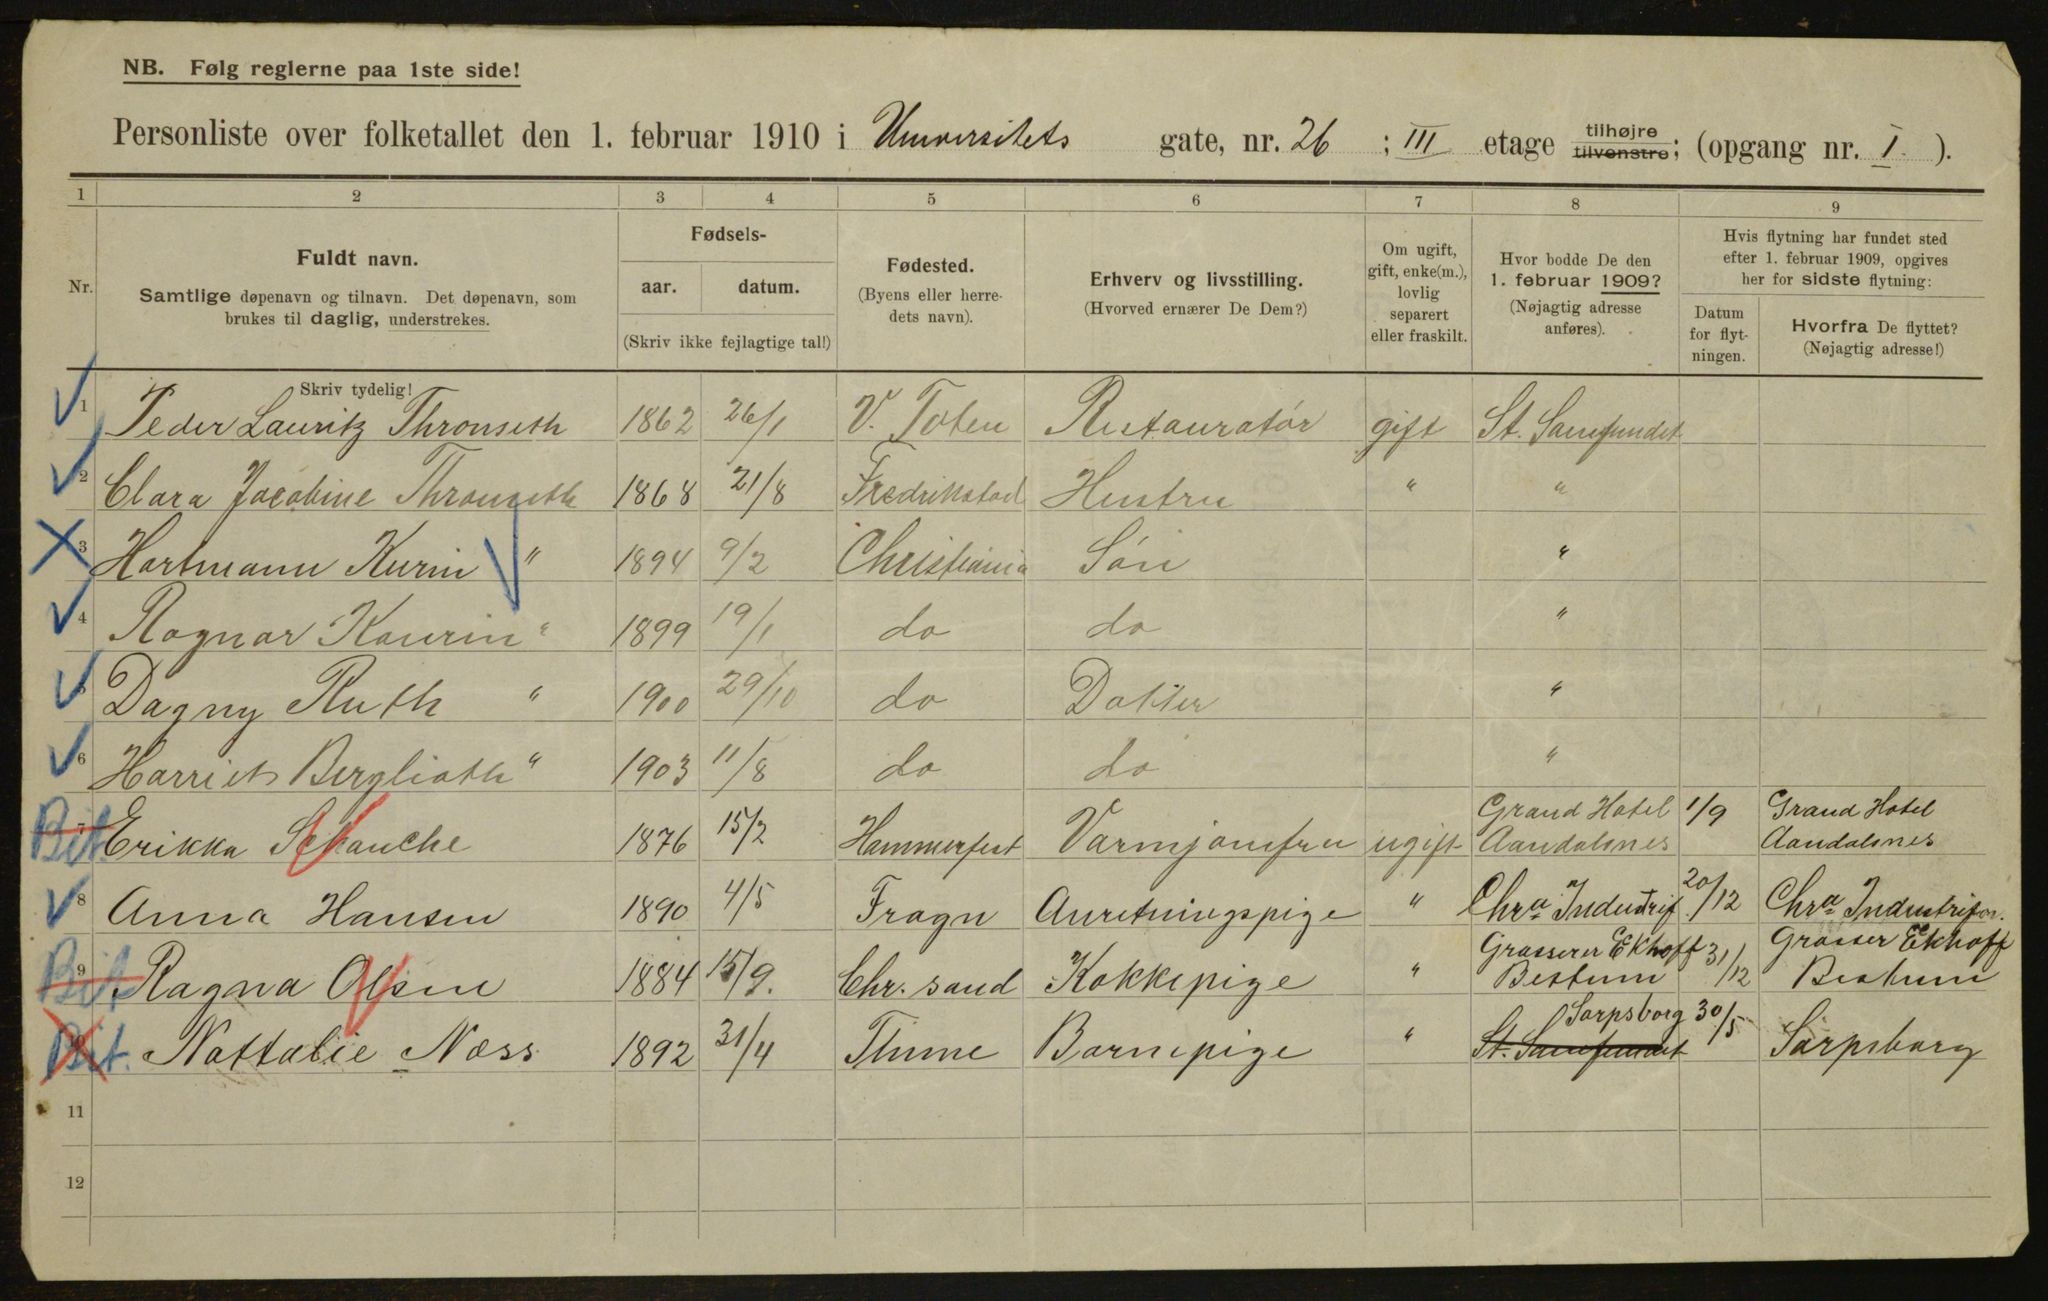 NB. Følg reglerne paa 1ste side!
Personliste over folketallet den 1. februar 1910 i Universitets gate, nr. 26 ; III etage tilhøjre tilvenstre; (opgang nr. I. ).
1 2 3 4 5 6 7 8 9
Nr. Fuldt navn. Samtlige døpenavn og tilnavn. Det døpenavn, som brukes til daglig, understrekes.
Fødsels- aar. datum. (Skriv ikke fejlagtige tal!)
Fødested. (Byens eller herredets navn).
Erhverv og livsstilling. (Hvorved ernærer De Dem?)
Om ugift, gift, enke(m.), lovlig separert eller fraskilt.
Hvor bodde De den 1. februar 1909? (Nøjagtig adresse anføres).
Hvis flytning har fundet sted efter 1. februar 1909, opgives her for sidste flytning:
Datum for flytningen. Hvorfra De flyttet? (Nøjagtig adresse!)
Skriv tydelig!
1 Peder Lauritz Thronseth 1862 26/1 V. Toten Restauratør gift St. Samfundet
2 Clara Jacobine Thronseth 1868 21/8 Fredrikstad Hustru " "
3 Hartmann Kurin " 1894 9/2 Christiania Søn "
4 Ragnar Kaurin " 1899 19/1 do do "
5 Dagny Ruth " 1900 29/10 do Dotter "
6 Harriet Berglioth " 1903 11/8 do do "
Bit. 7 Erikka Schanche 1876 15/2 Hammerfest Varmjomfru ugift Grand Hotel Aandalsnes 1/9 Grand Hotel Aandalsnes
8 Anna Hansen 1890 4/5 Frogn Anretningspige " Chra Industrif. 20/12 Chra Industrifor.
Bit 9 Ragna Olsen 1884 15/9. Chr. sand Kokkepige " Grosserer Ekhoff Bestum 31/12 Grosser Ekhoff Bestum
Bit. Nattalie Næss 1892 31/4 Thime Barnepige " Sarpsborg St. Samfundet 30/5 Sarpsborg
11
12